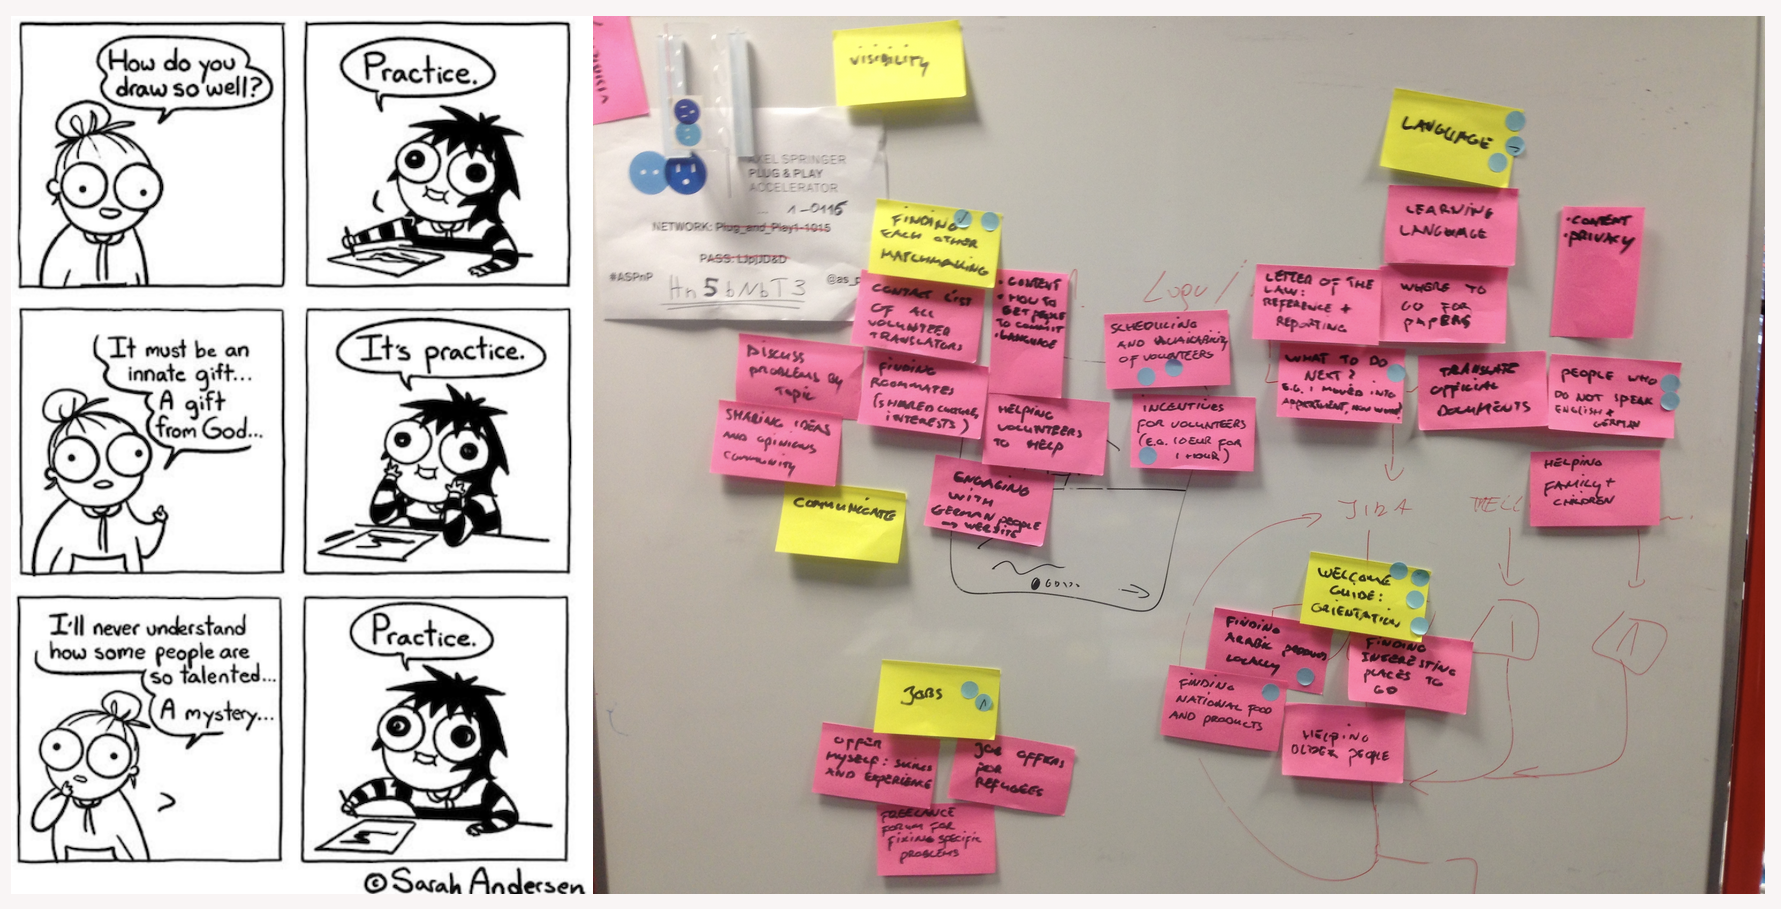 How do you
draw so well?
Practice.
It must be an
innate gift...
A gift
from God...
It's practice.
I'll never understand
how some people are
so talented...
A mystery...
Practice.
©Sarah Andersen
VISIBILITY
AXEL SPRINGER
PLUG & PLAY
ACCELERATOR
1-0116
NETWORK: Plug_and_Play1-1015
PASS:
#ASPnP
@as_p
Hn5bNbT3
FINDING
EACH OTHER
MATCHMAKING
CONTACT LIST
OF ALL
VOLUNTEER
TRANSLATORS
• CONTENT
• HOW TO
GET PEOPLE
TO COMMIT
• LANGUAGE
DISCUSS
PROBLEMS BY
TOPIC
FINDING
ROOMMATES
(SHARED CULTURE,
INTERESTS)
SHARING IDEAS
AND OPINIONS
COMMUNITY
HELPING
VOLUNTEERS
TO HELP
ENGAGING
WITH
GERMAN PEOPLE
WEBSITE
COMMUNICATE
SCHEDULING
AND AVAILABILITY
OF VOLUNTEERS
INCENTIVES
FOR VOLUNTEERS
(E.G. 10EUR FOR
1 HOUR)
LANGUAGE
LEARNING
LANGUAGE
• CONTENT
• PRIVACY
LETTER OF THE
LAW:
REFERENCE +
REPORTING
WHERE TO
GO FOR
PAPERS
WHAT TO DO
NEXT?
E.G. I MOVED INTO
APPARTMENT, NOW WHAT?
TRANSLATE
OFFICIAL
DOCUMENTS
PEOPLE WHO
DO NOT SPEAK
ENGLISH +
GERMAN
HELPING
FAMILY +
CHILDREN
WELCOME
GUIDE:
ORIENTATION
FINDING
ARABIC PRODUCTS
LOCALLY
FINDING
INTERESTING
PLACES TO
GO
FINDING
NATIONAL FOOD
AND PRODUCTS
HELPING
OLDER PEOPLE
JOBS
OFFER
MYSELF: SKILLS
AND EXPERIENCE
JOB OFFERS
FOR
REFUGEES
FREELANCE
FORUM FOR
FIXING SPECIFIC
PROBLEMS